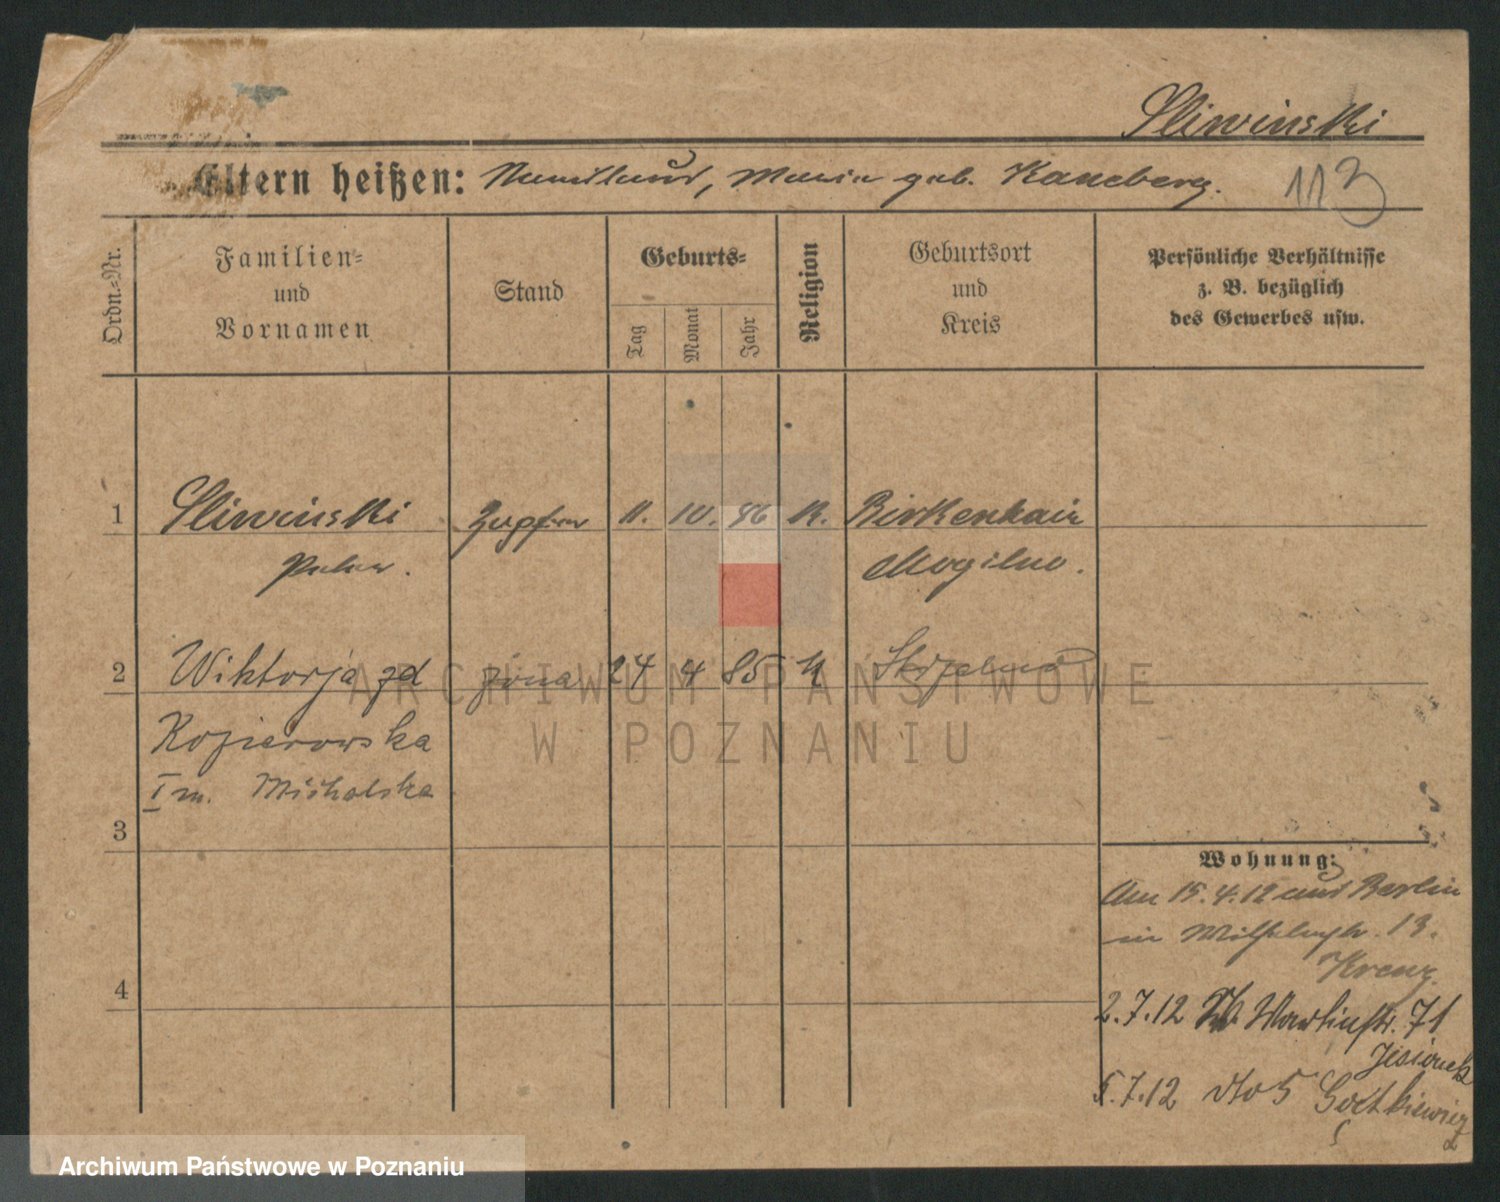 Sliwinski
Eltern heißen: Maria geb. 113
Ordn.-Nr.
Familien-
und
Vornamen
Stand
Geburts-
Tag
Monat
Jahr
Religion
Geburtsort
und
Kreis
Persönliche Verhältnisse
z. B. bezüglich
des Gewerbes usw.
1 Sliwinski 11. 10. 86 K. Birkenhain
Peter. Mogilno.
2 Wiktorja zd żona 24 4 85 K Strzelno
Kozierowska
I m. Michalska
3
Wohnung:
Am 15.4.12 aus Berlin
in Wilhelmstr. 13.
Krenz
4
2.7.12 St. Martinstr. 71
Jesionek
5.7.12 dto 5
ARCHIWUM PAŃSTWOWE
W POZNANIU
Archiwum Państwowe w Poznaniu